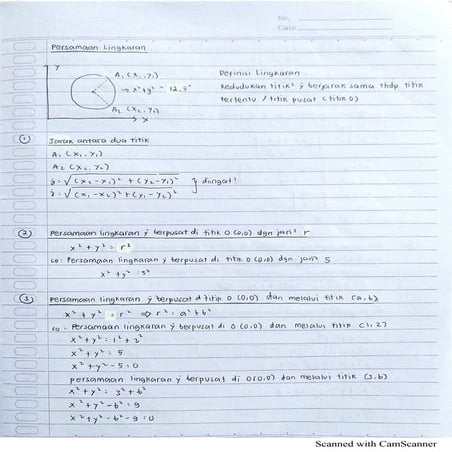 No.
Date
Persamaan Lingkaran
Y
A₁ (x₁, y₁)
→ x² + y² = 12,5²
A₂ (x₂, y₂)
X
Definisi Lingkaran
Kedudukan titik² ÿ berjarak sama thdp titik
tertentu / titik pusat (titik O)
① Jarak antara dua titik
A₁ (x₁, y₁)
A₂ (x₂, y₂)
= √(x₂ - x₁)² + (y₂ - y₁)²
= √(x₁ - x₂)² + (y₁ - y₂)²
} diingat!
② Persamaan lingkaran ÿ berpusat di titik O (0,0) dgn jari² r
x² + y² = r²
co: Persamaan lingkaran ÿ berpusat di titik O (0,0) dgn jari² 5
x² + y² = 5²
③ Persamaan lingkaran ÿ berpusat d titik O (0,0) dan melalui titik (a,b)
x² + y² = r² ⇒ r² = a² + b²
co: Persamaan lingkaran ÿ berpusat di O (0,0) dan melalui titik (1,2)
x² + y² = 1² + 2²
x² + y² = 5
x² + y² - 5 = 0
persamaan lingkaran ÿ berpusat di O(0,0) dan melalui titik (3,b)
x² + y² = 3² + b²
x² + y² - b² = 9
x² + y² - b² - 9 = 0
Scanned with CamScanner